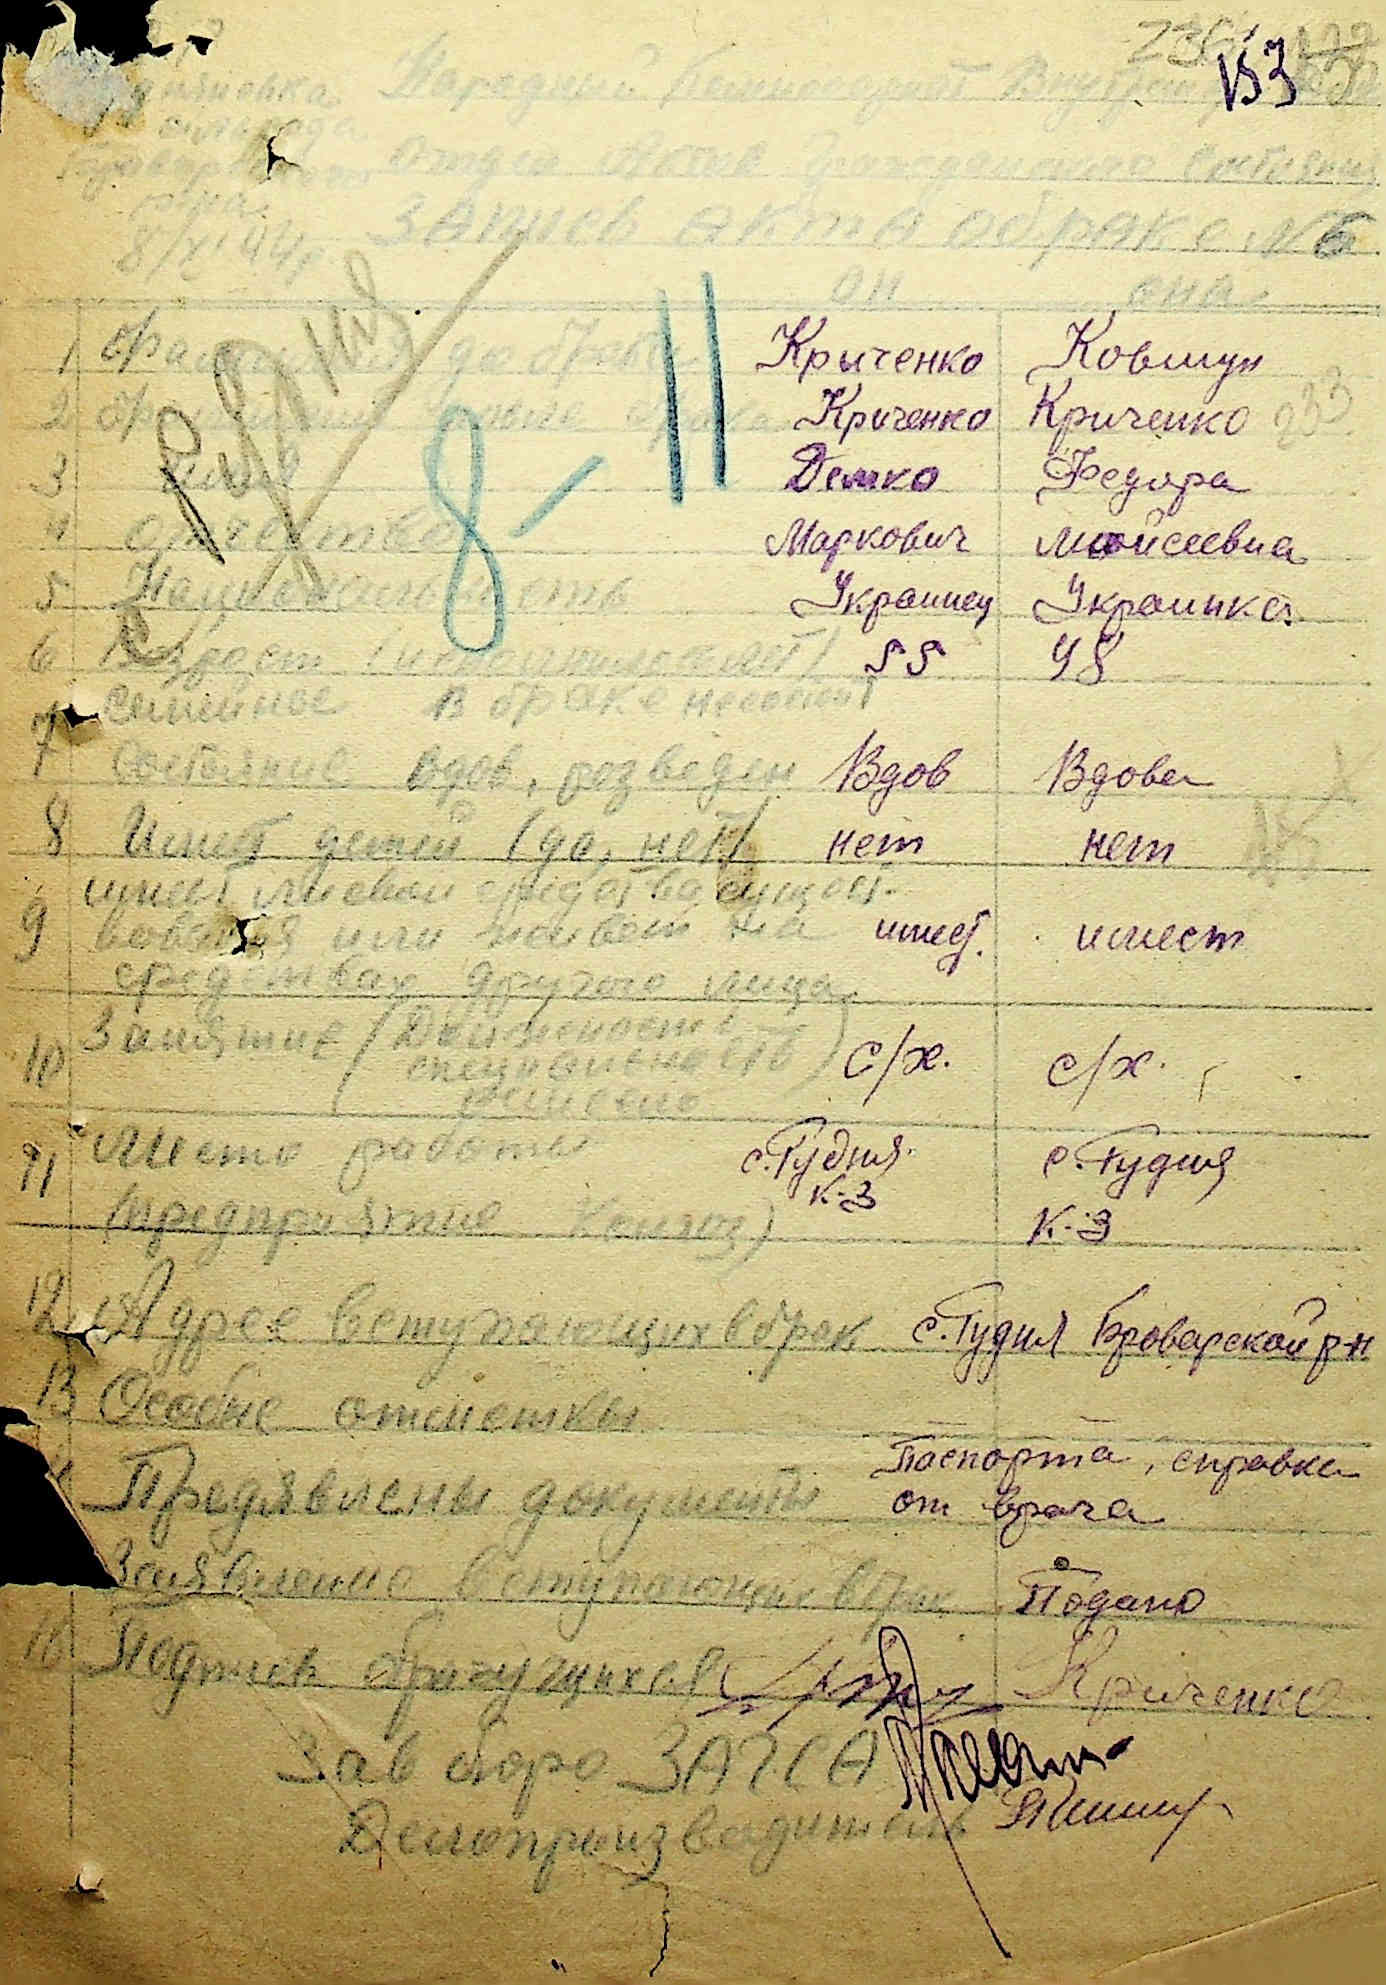 153
Народный Комиссариат Внутрен
отдел Актов Гражданского состояния
8/XI 44г
Запись акта о браке № 6
он она
1 Фамилия до брака Крыченко Ковтун
2 Фамилия после брака Криченко Криченко
233
3 Имя Демко Федора
4 Отчество Маркович Мойсеевна
8-11
5 Национальность Украинец Украинка
6 Возраст (исполнилось лет) 55 48
7 Семейное в браке несостоит
состояние вдов, розведен Вдов Вдова
8 Имеет детей (да, нет) нет нет
9 имеет ли свои средства сущест-
вования или живет на имеет. имеет
средствах другого лица
10 Занятие (Должность с/х. с/х.
специальность)
11 Место работы с. Гудня. с. Гудня
к-з
(предприятие Колхоз) к-з
12 Адрес вступающих в брак с. Гудня Броварской р-н
13 Особые отметки
Предявлены документы Паспорта, справка
от врача
Заявление вступающие в брак Подано
16 Подписи брачущихся Криченко
Зав бюро ЗАГСА
Делопроизводитель